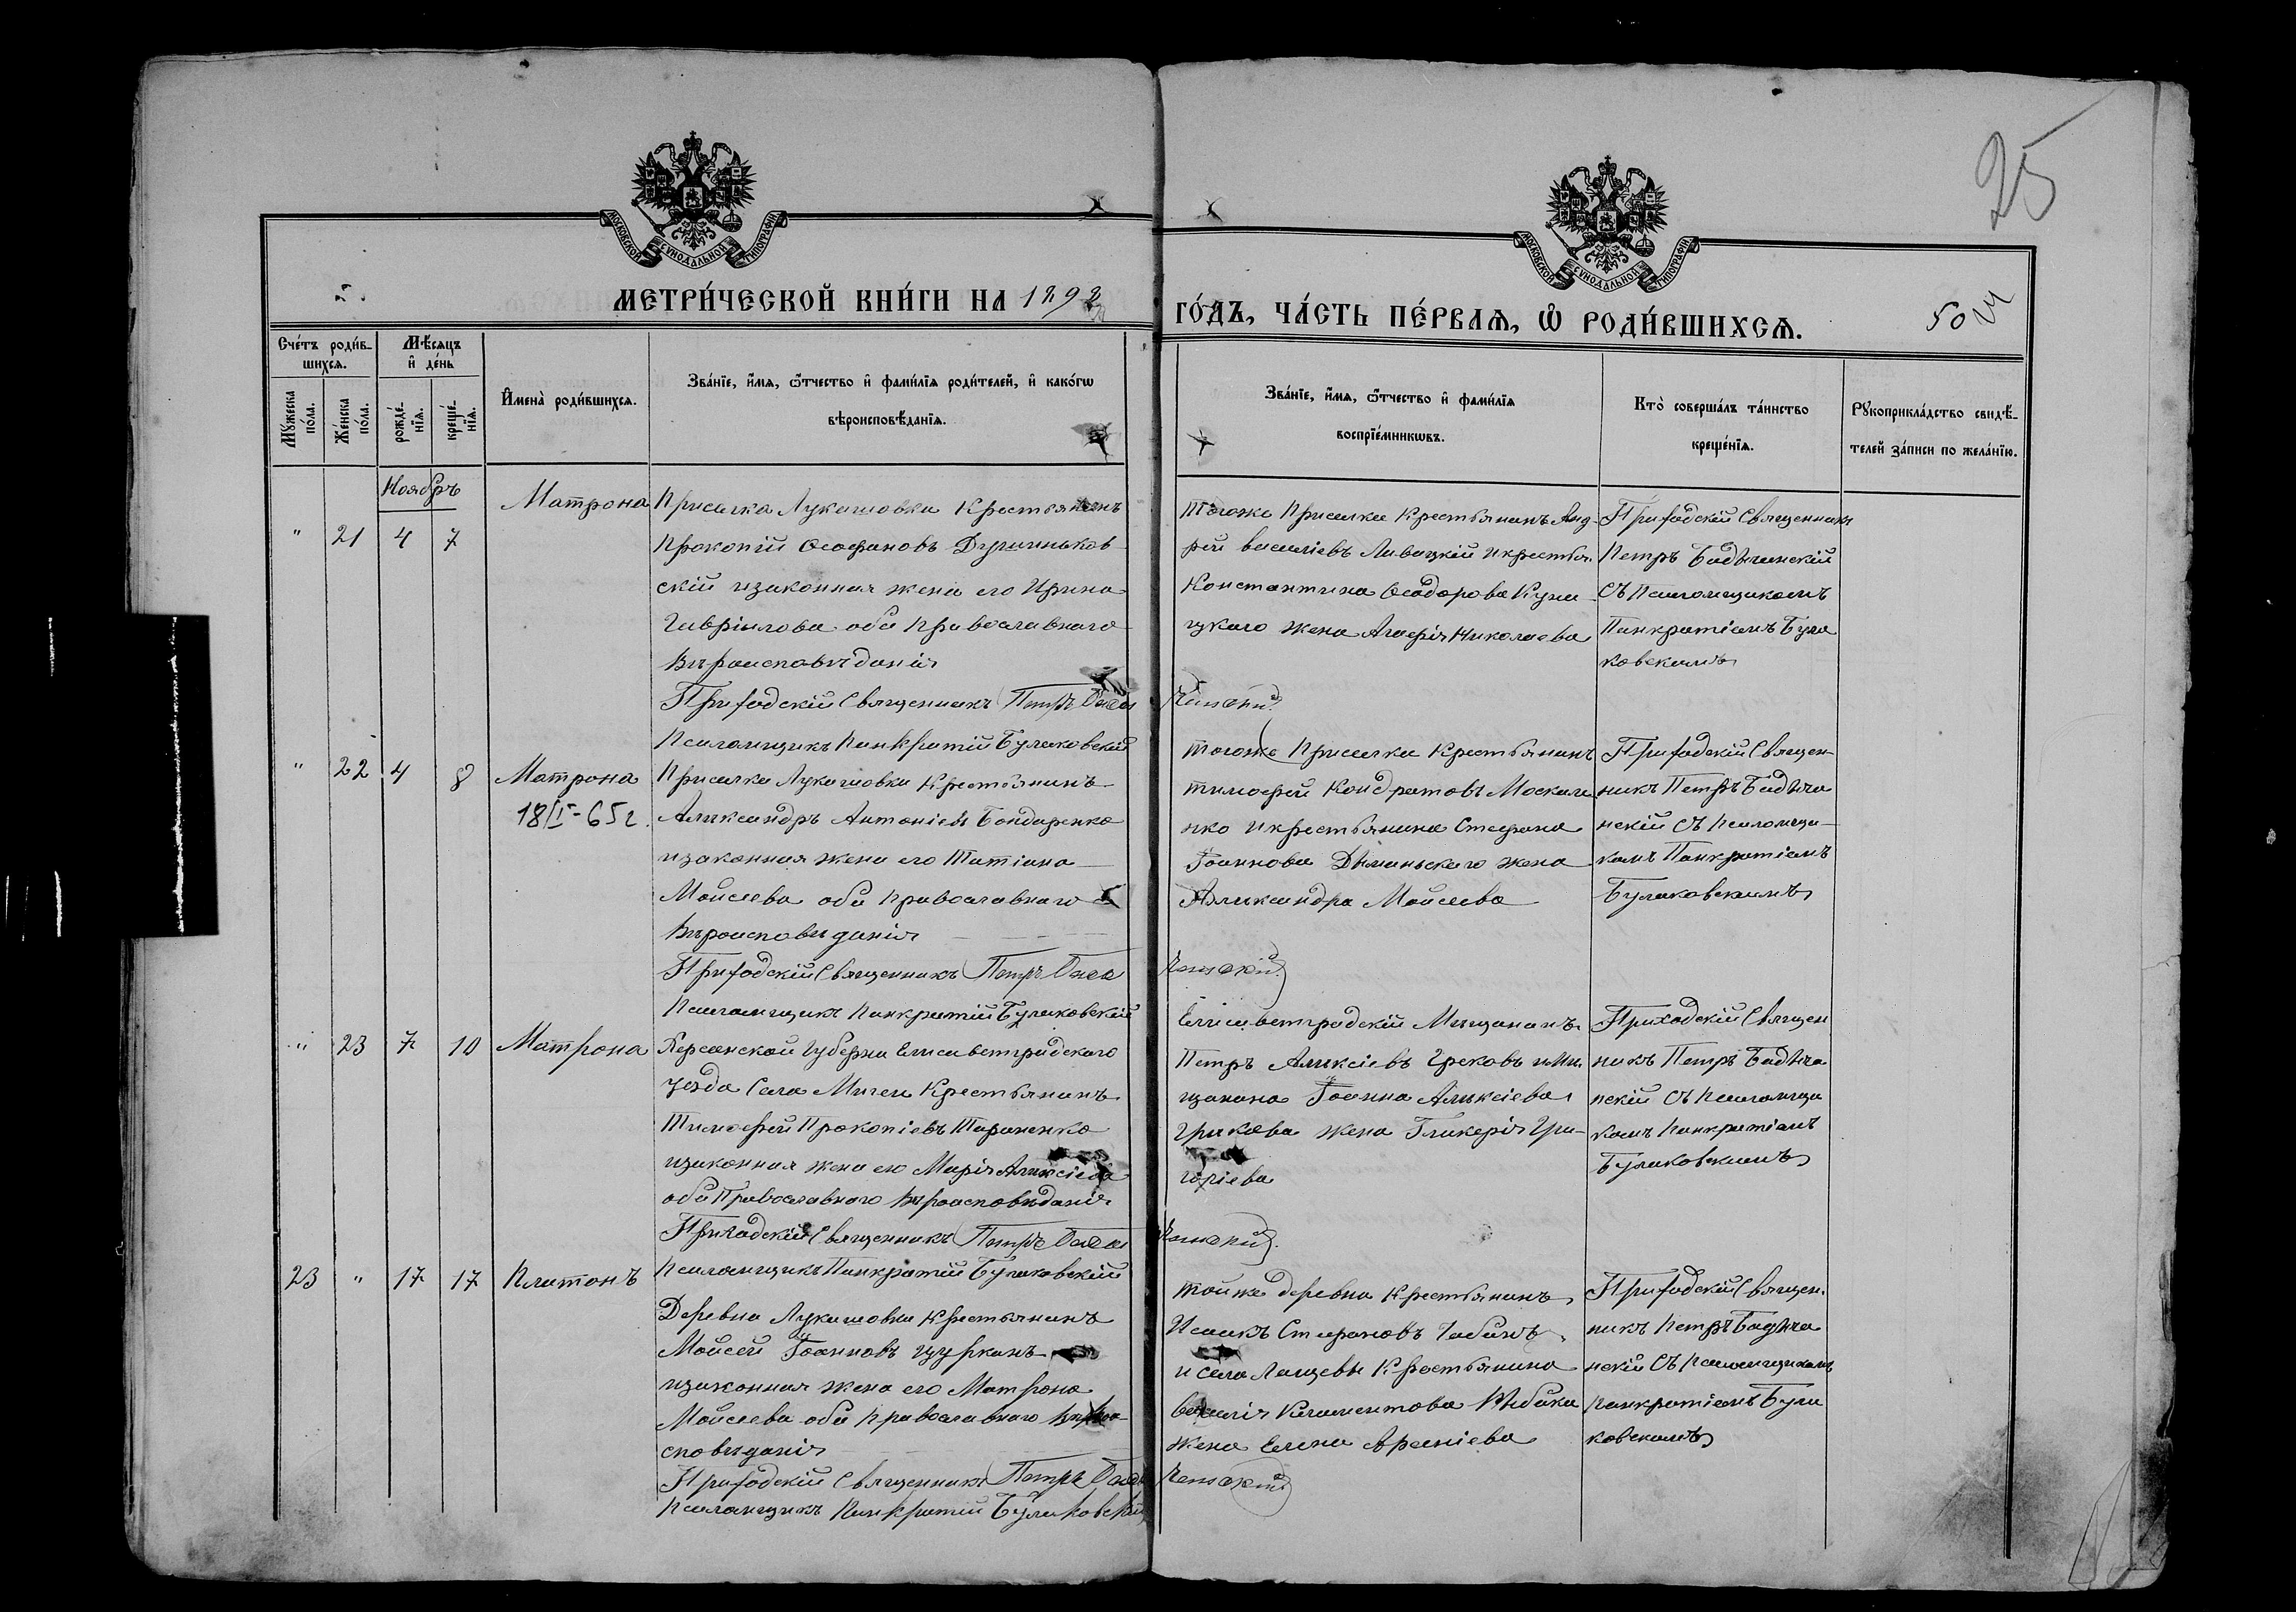 25
МОСКОВСКОЙ СѴНОДАЛЬНОЙ ТИПОГРАФІИ
МОСКОВСКОЙ СѴНОДАЛЬНОЙ ТИПОГРАФІИ
МЕТРИ́ЧЕСКОЙ КНИ́ГИ НА 1892
ГО́ДЪ, ЧА́СТЬ ПЕ́РВАѦ, Ѡ РОДИ́ВШИХСѦ.
50
Сче́тъ роди́в-
шихсѧ.
Мꙋ́жеска по́ла.
Же́нска по́ла.
Мѣ́сѧцъ
и҆ де́нь
рожде́-
нїѧ.
креще́-
нїѧ.
И҆мена̀ роди́вшихсѧ.
Зва́нїе, и҆́мѧ, ѻ҆́тчество и҆ фами́лїѧ роди́телей, и҆ како́гѡ
вѣроисповѣ́данїѧ.
Зва́нїе, и҆́мѧ, ѻ҆́тчество и҆ фами́лїѧ
воспрїе́мникѡвъ.
Кто̀ соверша́лъ та́инство
креще́нїѧ.
Рꙋкоприкла́дство свидѣ́-
телей за́писи по жела́нїю.
Ноябрь
" 21 4 7 Матрона
Приселка Лукашовки Крестьянинъ
Прокопій Ѳеофановъ
скій и законная жена его Ирина
Гавріилова оба Православнаго
Вѣроисповѣданія
Приходскій Священникъ Петръ
Псаломщикъ Панкратій Булаковскій
Тогоже Приселка Крестьянинъ Анд-
рей Василіевъ и крестья.
Константина Ѳеодорова Куни
цкаго жена Агафія Николаева
Приходскій Священникъ
Петръ
съ Псаломщикомъ
Панкратіемъ Була
ковскимъ
" 22 4 8 Матрона
18/I-65г.
Приселка Лукашовки Крестьянинъ
Александръ Антоніевъ Бондаренко
и законная жена его Татіана
Мойсеева оба Православнаго
Вѣроисповѣданія
Приходскій Священникъ Петръ
Псаломщикъ Панкратій Булаковскій
Тогоже Приселка Крестьянинъ
Тимофей Кондратовъ Москале
нко и крестьянина Стефана
Іоаннова жена
Александра Мойсеева
Приходскій Священ-
никъ Петръ
нскій съ Псаломщи-
комъ Панкратіемъ
Булаковскимъ
" 23 7 10 Матрона
Херсонской Губерни Елисаветградскаго
уезда Села Мигеи Крестьянинъ
Тимофей Прокопіевъ Тараненко
и законная жена его Марія Алексіева
оба Православнаго Вѣроисповѣданія
Приходскій Священникъ Петръ
Псаломщикъ Панкратій Булаковскій
Елисаветградскій Мещанинъ
Петръ Алексіевъ Грековъ и Ме.
щанина Іоанна Алексіева
Грекова жена Гликерія Гри-
горіева
Приходскій Священ
никъ Петръ
нскій съ Псаломщи
комъ Панкратіемъ
Булаковскимъ
23 " 17 17 Платонъ
Деревни Лукашовки Крестьянинъ
Мойсей Іоанновъ Цурканъ
и законная жена его Матрона
Мойсеева оба Православнаго Вѣрои-
споведанія
Приходскій Священникъ Петръ
Псаломщикъ Панкратій Булаковскій
Тойже деревни Крестьянинъ
Исаакъ Стефановъ
и села Крестьянина
Василія Климентова
жена Елена Арсеніева
Приходскій Священ.
никъ Петръ
нскій съ Псаломщикомъ
Панкратіемъ Була
ковскимъ